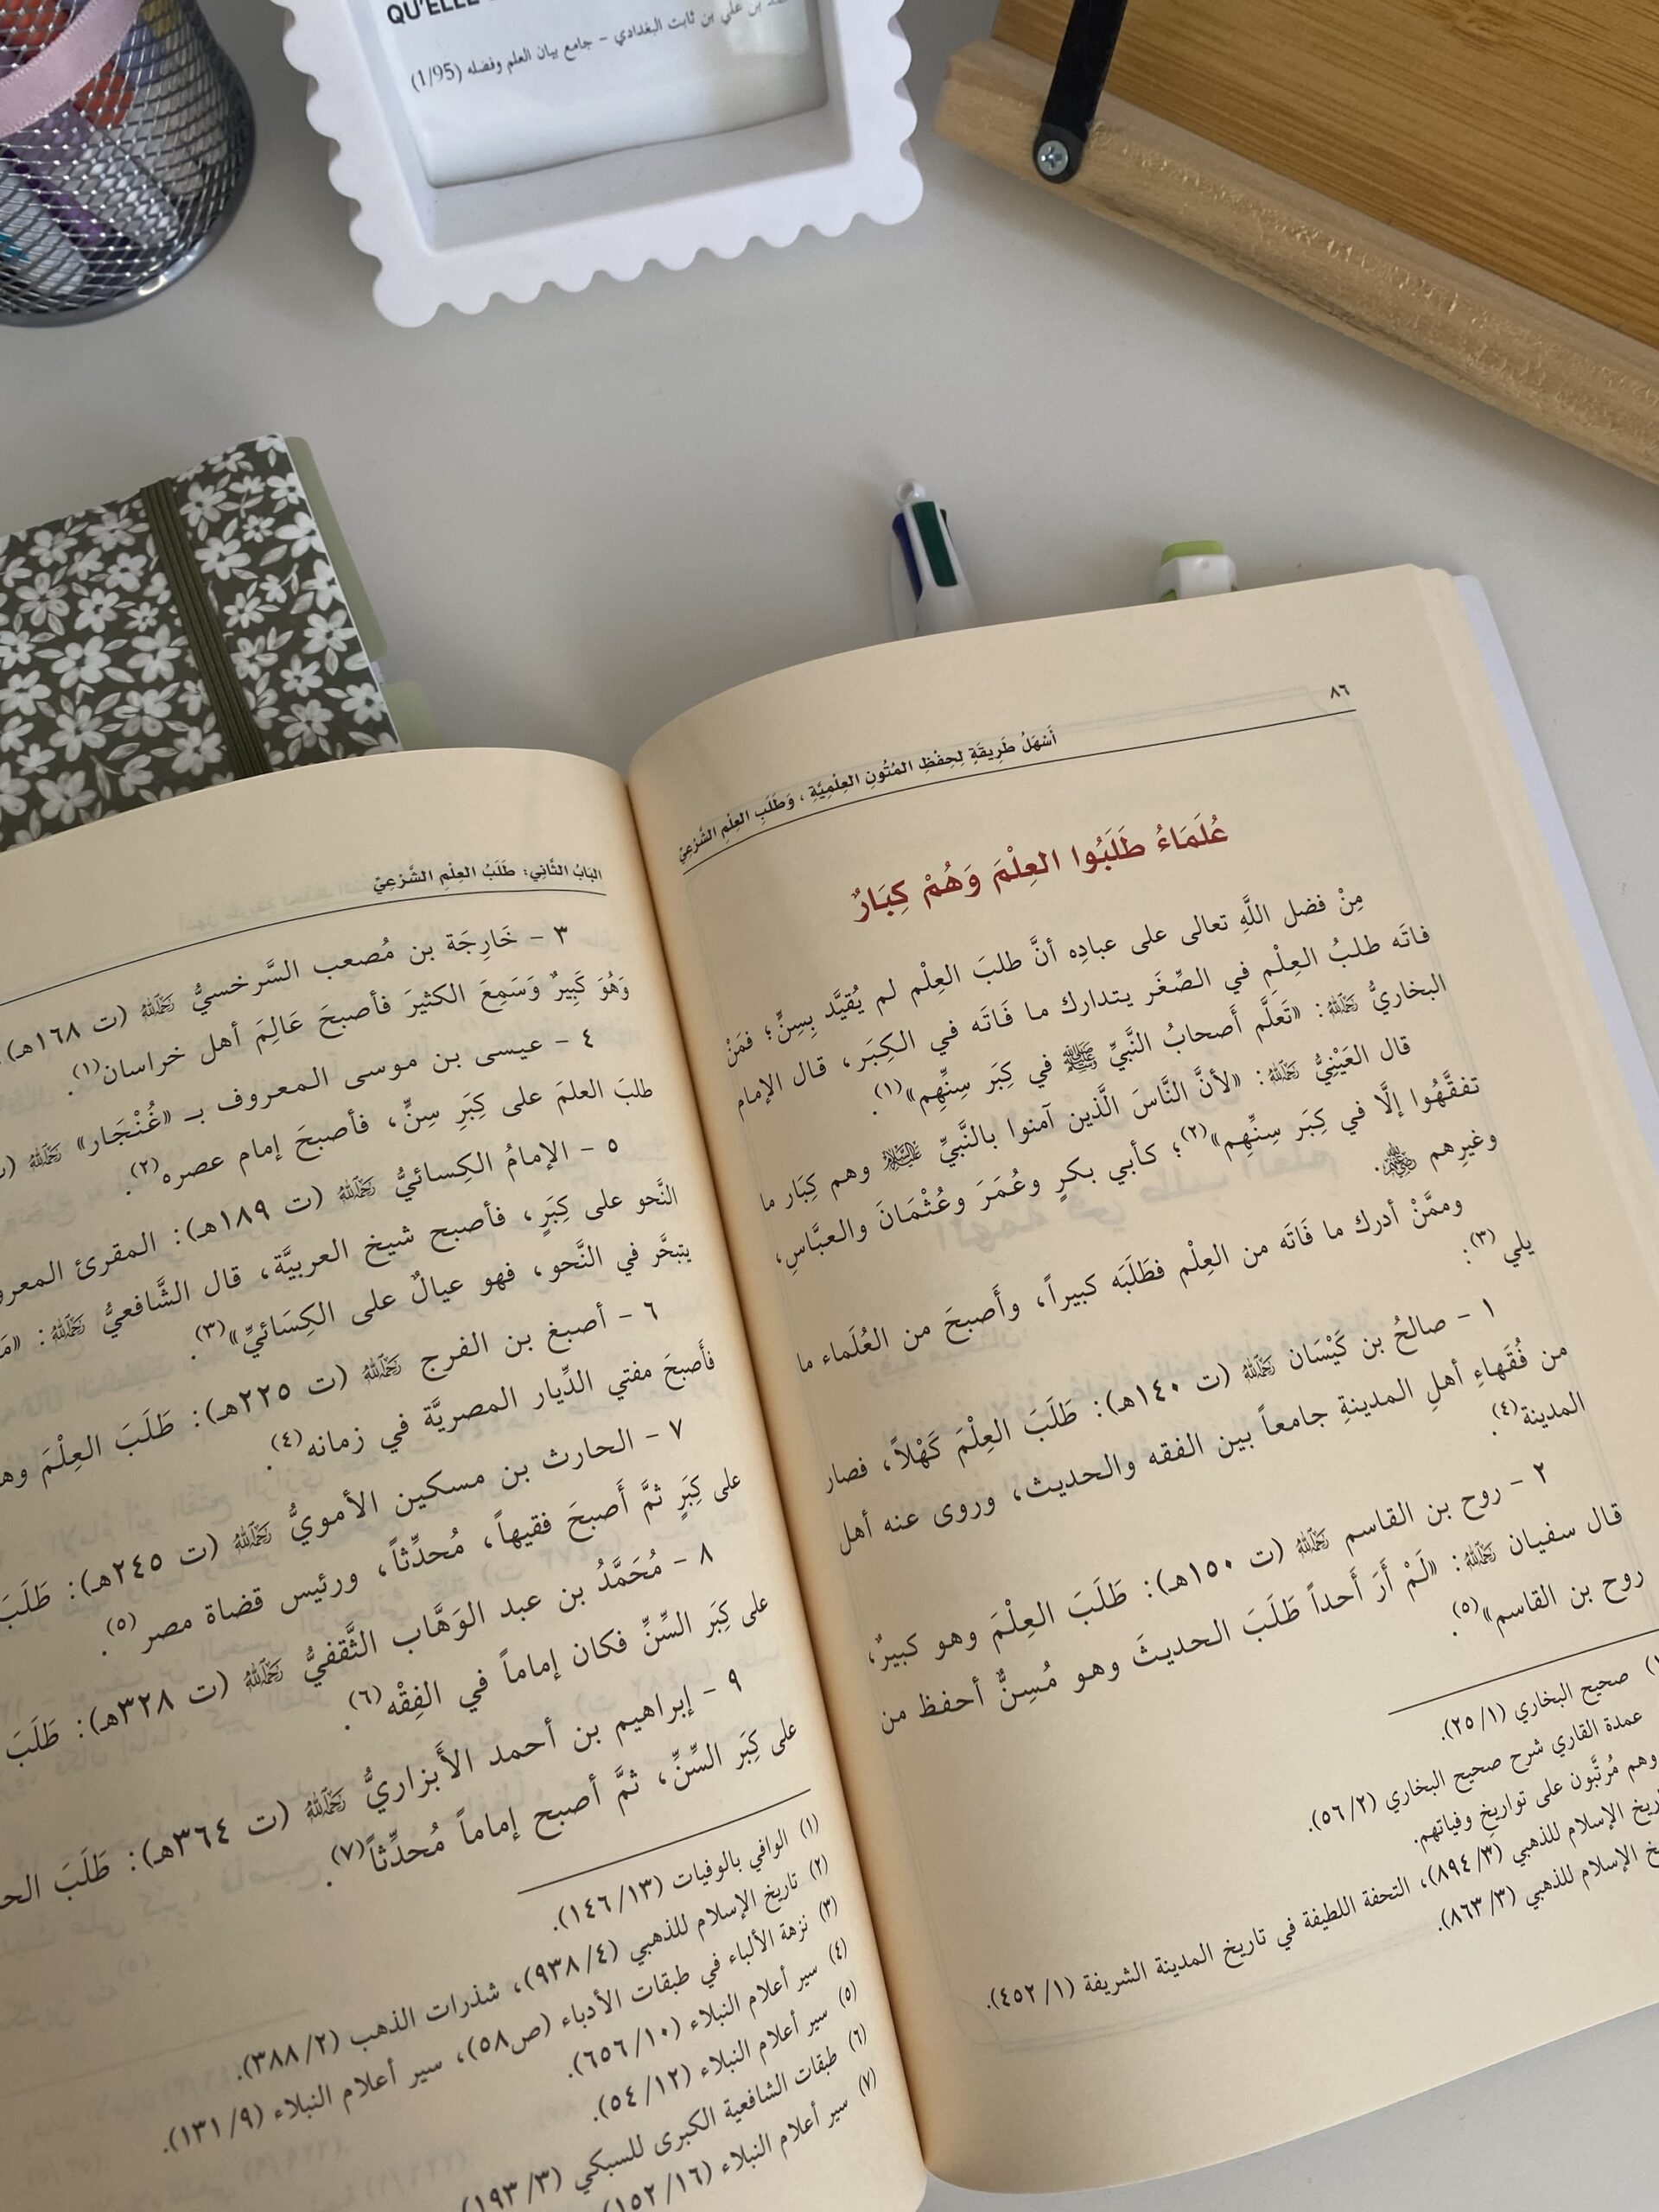 QU'ELLE
بن علي بن ثابت البغدادي – جامع بيان العلم وفضله (1/95)
٨٦
أَسْهَلُ طَرِيقَةٍ لِحِفْظِ المُتُونِ العِلْمِيَّةِ ، وَطَلَبِ العِلْمِ الشَّرْعِيِّ
عُلَمَاءُ طَلَبُوا العِلْمَ وَهُمْ كِبَارٌ
مِنْ فضل اللَّهِ تعالى على عبادِه أنَّ طلبَ العِلْم لم يُقيَّد بِسِنٍّ؛ فمَنْ
فاتَه طلبُ العِلْمِ في الصِّغَر يتدارك ما فَاتَه في الكِبَر، قال الإمام
البخاريُّ رَحِمَهُ اللَّهُ: «تَعلَّم أَصحابُ النَّبيِّ ﷺ في كِبَر سِنِّهِم»(١).
قال العَيْنِيُّ رَحِمَهُ اللَّهُ: «لأنَّ النَّاسَ الَّذين آمنوا بالنَّبيِّ عَلَيْهِ السَّلَامُ وهم كِبَار ما
تفقَّهُوا إلَّا في كِبَر سِنِّهِم»(٢)؛ كأبي بكرٍ وعُمَرَ وعُثْمَانَ والعبَّاسِ،
وغيرِهم رَضِيَ اللَّهُ عَنْهُمْ.
وممَّنْ أدرك ما فَاتَه من العِلْم فطَلَبَه كبيراً، وأَصبحَ من العُلَماء ما
يلي(٣):
١ - صالحُ بن كَيْسَان رَحِمَهُ اللَّهُ (ت ١٤٠هـ): طَلَبَ العِلْمَ كَهْلاً، فصار
من فُقَهاءِ أهلِ المدينةِ جامعاً بين الفقه والحديث، وروى عنه أهل
المدينة(٤).
٢ - روح بن القاسم رَحِمَهُ اللَّهُ (ت ١٥٠هـ): طَلَبَ العِلْمَ وهو كبيرٌ،
قال سفيان رَحِمَهُ اللَّهُ: «لَمْ أَرَ أَحداً طَلَبَ الحديثَ وهو مُسِنٌّ أحفظ من
روح بن القاسم»(٥).
صحيح البخاري (١/ ٢٥).
عمدة القاري شرح صحيح البخاري (٢/ ٥٦).
وهم مُرتَّبون على تواريخِ وفياتهم.
الإسلام للذهبي (٣/ ٨٩٤)، التحفة اللطيفة في تاريخ المدينة الشريفة (١/ ٤٥٢).
الإسلام للذهبي (٣/ ٨٦٣).
البَابُ الثَّاني: طَلَبُ العِلْمِ الشَّرْعِيِّ
٣ - خَارِجَة بن مُصعب السَّرخسيُّ رَحِمَهُ اللَّهُ (ت ١٦٨هـ)
وَهُوَ كَبِيرٌ وَسَمِعَ الكثيرَ فأصبحَ عَالِمَ أهل خراسان(١).
٤ - عيسى بن موسى المعروف بـ «غُنْجَار» رَحِمَهُ اللَّهُ
طلبَ العلمَ على كِبَرِ سِنٍّ، فأصبحَ إمام عصره(٢).
٥ - الإمامُ الكِسائيُّ رَحِمَهُ اللَّهُ (ت ١٨٩هـ): المقرئ
النَّحو على كِبَرٍ، فأصبح شيخ العربيَّة، قال الشَّافعيُّ رَحِمَهُ اللَّهُ:
يتبحَّر في النَّحو، فهو عيالٌ على الكِسَائيِّ»(٣).
٦ - أصبغ بن الفرج رَحِمَهُ اللَّهُ (ت ٢٢٥هـ): طَلَبَ العِلْمَ
فأَصبحَ مفتي الدِّيار المصريَّة في زمانه(٤).
٧ - الحارث بن مسكين الأمويُّ رَحِمَهُ اللَّهُ (ت ٢٤٥هـ): طَلَبَ
على كِبَرٍ ثمَّ أَصبحَ فقيهاً، مُحدِّثاً، ورئيس قضاة مصر(٥).
٨ - مُحَمَّدُ بن عبد الوَهَّاب الثَّقفيُّ رَحِمَهُ اللَّهُ (ت ٣٢٨هـ): طَلَبَ
على كِبَر السِّنِّ فكان إماماً في الفِقْه(٦).
٩ - إبراهيم بن أحمد الأَبزاريُّ رَحِمَهُ اللَّهُ (ت ٣٦٤هـ): طَلَبَ
على كِبَر السِّنِّ، ثمَّ أصبح إماماً مُحدِّثاً(٧).
(١) الوافي بالوفيات (١٣/ ١٤٦).
(٢) تاريخ الإسلام للذهبي (٤/ ٩٣٨)، شذرات الذهب (٢/ ٣٨٨).
(٣) نزهة الألباء في طبقات الأدباء (ص٥٨)، سير أعلام النبلاء (٩/ ١٣١).
(٤) سير أعلام النبلاء (١٠/ ٦٥٦).
(٥) سير أعلام النبلاء (١٢/ ٥٤).
(٦) طبقات الشافعية الكبرى للسبكي (٣/ ١٩٣).
(٧) سير أعلام النبلاء (١٦/ ١٥٢).